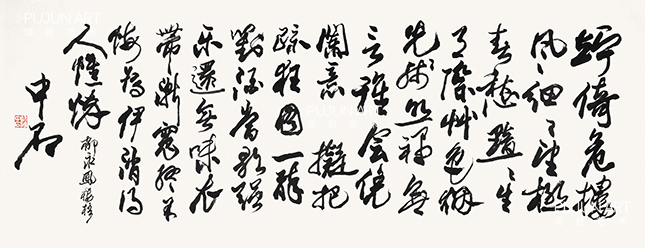 竚倚危樓
風細々望極
春愁黯々生
天際草色烟
光殘照裡無
言誰會凭
闌意擬把
疏狂圖一醉
對酒當歌強
樂還無味衣
帶漸寬終不
悔為伊消得
人憔悴
柳永鳳棲梧
中石
PUJUN ART
PUJUN ART
PUJUN ART